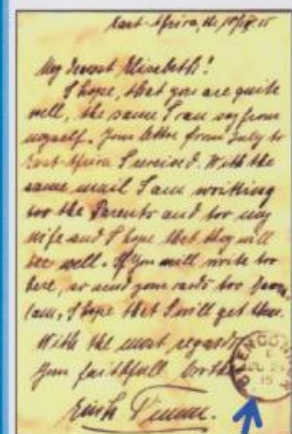 East-Africa, the 10/IX 15
My dearest Elisabeth!
I hope, that you are quite
well, the same I can say from
myself. Your letter from July to
East-Africa I received. With the
same mail I am writting
too the Parents and too my
wife and I hope that they will
bee well. If you will write too
here, or send your cards too
I hope that I will get them.
With the most regards
Your faithfull
Erich
15